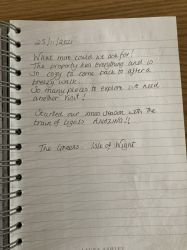 25/11/2021
What more could we ask for!
The property has everything and is
so cosy to come back to after a
breezy walk.
So many places to explore we need
another visit!
Started our xmas season with the
train of lights AMAZING!!
The Greens. Isle of Wight